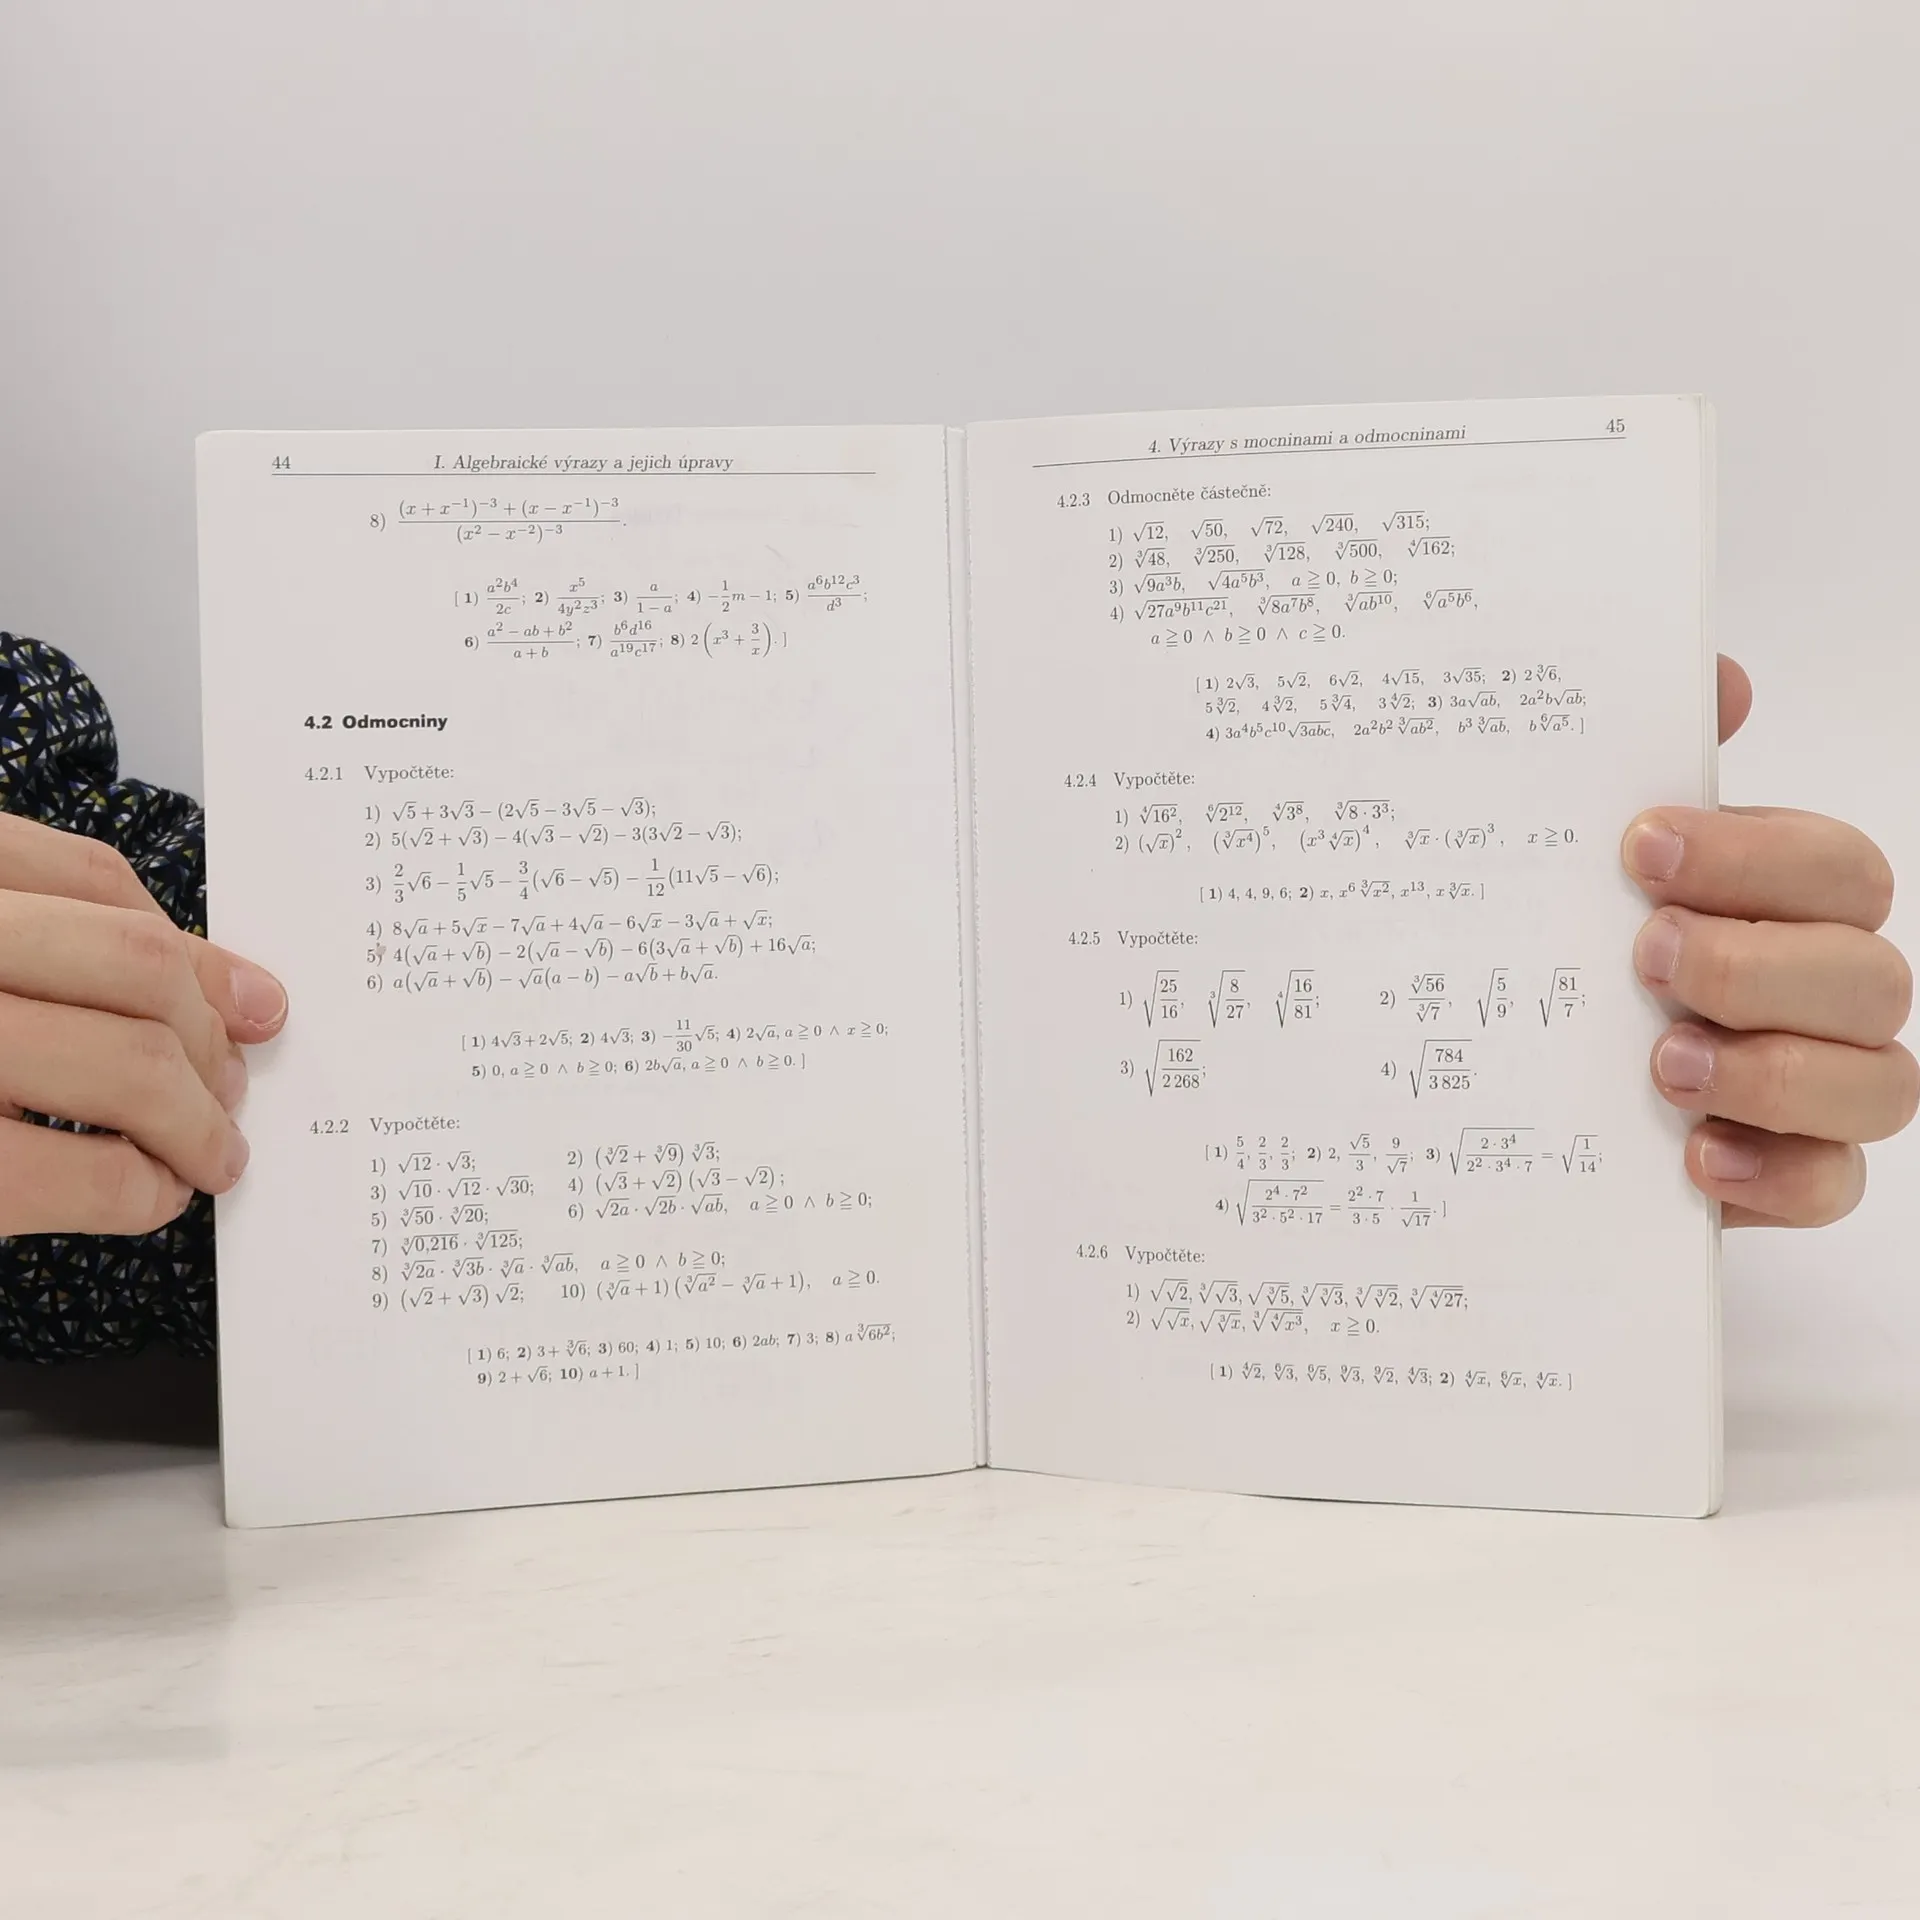 44 I. Algebraické výrazy a jejich úpravy
8) \frac{(x + x^{-1})^{-3} + (x − x^{-1})^{-3}}{(x^2 − x^{-2})^{-3}}.
[ 1) \frac{a^2b^4}{2c}; 2) \frac{x^5}{4y^2z^3}; 3) \frac{a}{1 − a}; 4) −\frac{1}{2}m − 1; 5) \frac{a^6b^{12}c^3}{d^3};
6) \frac{a^2 − ab + b^2}{a + b}; 7) \frac{b^6d^{16}}{a^{19}c^{17}}; 8) 2(x^3 + \frac{3}{x}). ]
4.2 Odmocniny
4.2.1 Vypočtěte:
1) √5 + 3√3 − (2√5 − 3√5 − √3);
2) 5(√2 + √3) − 4(√3 − √2) − 3(3√2 − √3);
3) \frac{2}{3}√6 − \frac{1}{5}√5 − \frac{3}{4}(√6 − √5) − \frac{1}{12}(11√5 − √6);
4) 8√a + 5√x − 7√a + 4√a − 6√x − 3√a + √x;
5) 4(√a + √b) − 2(√a − √b) − 6(3√a + √b) + 16√a;
6) a(√a + √b) − √a(a − b) − a√b + b√a.
[ 1) 4√3 + 2√5; 2) 4√3; 3) −\frac{11}{30}√5; 4) 2√a, a ≧ 0 ∧ x ≧ 0;
5) 0, a ≧ 0 ∧ b ≧ 0; 6) 2b√a, a ≧ 0 ∧ b ≧ 0. ]
4.2.2 Vypočtěte:
1) √12 · √3; 2) (∛2 + ∛9) ∛3;
3) √10 · √12 · √30; 4) (√3 + √2) (√3 − √2);
5) ∛50 · ∛20; 6) √(2a) · √(2b) · √(ab), a ≧ 0 ∧ b ≧ 0;
7) ∛0,216 · ∛125;
8) ∛(2a) · ∛(3b) · ∛a · ∛(ab), a ≧ 0 ∧ b ≧ 0;
9) (√2 + √3) √2; 10) (∛a + 1) (∛(a^2) − ∛a + 1), a ≧ 0.
[ 1) 6; 2) 3 + ∛6; 3) 60; 4) 1; 5) 10; 6) 2ab; 7) 3; 8) a ∛(6b^2);
9) 2 + √6; 10) a + 1. ]
4. Výrazy s mocninami a odmocninami 45
4.2.3 Odmocněte částečně:
1) √12, √50, √72, √240, √315;
2) ∛48, ∛250, ∛128, ∛500, ∜162;
3) √(9a^3b), √(4a^5b^3), a ≧ 0, b ≧ 0;
4) √(27a^9b^{11}c^{21}), ∛(8a^7b^8), ∛(ab^{10}), \sqrt[6]{a^5b^6},
a ≧ 0 ∧ b ≧ 0 ∧ c ≧ 0.
[ 1) 2√3, 5√2, 6√2, 4√15, 3√35; 2) 2 ∛6,
5 ∛2, 4 ∛2, 5 ∛4, 3 ∜2; 3) 3a√(ab), 2a^2b√(ab);
4) 3a^4b^5c^{10}√(3abc), 2a^2b^2 ∛(ab^2), b^3 ∛(ab), b \sqrt[6]{a^5}. ]
4.2.4 Vypočtěte:
1) ∜(16^2), \sqrt[6]{2^{12}}, ∜(3^8), ∛(8 · 3^3);
2) (√x)^2, (∛(x^4))^5, (x^3 ∜x)^4, ∛x · (∛x)^3, x ≧ 0.
[ 1) 4, 4, 9, 6; 2) x, x^6 ∛(x^2), x^{13}, x ∛x. ]
4.2.5 Vypočtěte:
1) √(\frac{25}{16}), ∛(\frac{8}{27}), ∜(\frac{16}{81}); 2) \frac{∛56}{∛7}, √(\frac{5}{9}), √(\frac{81}{7});
3) √(\frac{162}{2 268}); 4) √(\frac{784}{3 825}).
[ 1) \frac{5}{4}, \frac{2}{3}, \frac{2}{3}; 2) 2, \frac{√5}{3}, \frac{9}{√7}; 3) √(\frac{2 · 3^4}{2^2 · 3^4 · 7}) = √(\frac{1}{14});
4) √(\frac{2^4 · 7^2}{3^2 · 5^2 · 17}) = \frac{2^2 · 7}{3 · 5} · \frac{1}{√17}. ]
4.2.6 Vypočtěte:
1) √(√2), ∛(√3), √(∛5), ∛(∛3), ∛(∛2), ∛(∜27);
2) √(√x), √(∛x), ∛(∜(x^3)), x ≧ 0.
[ 1) ∜2, \sqrt[6]{3}, \sqrt[6]{5}, \sqrt[9]{3}, \sqrt[9]{2}, ∜3; 2) ∜x, \sqrt[6]{x}, ∜x. ]